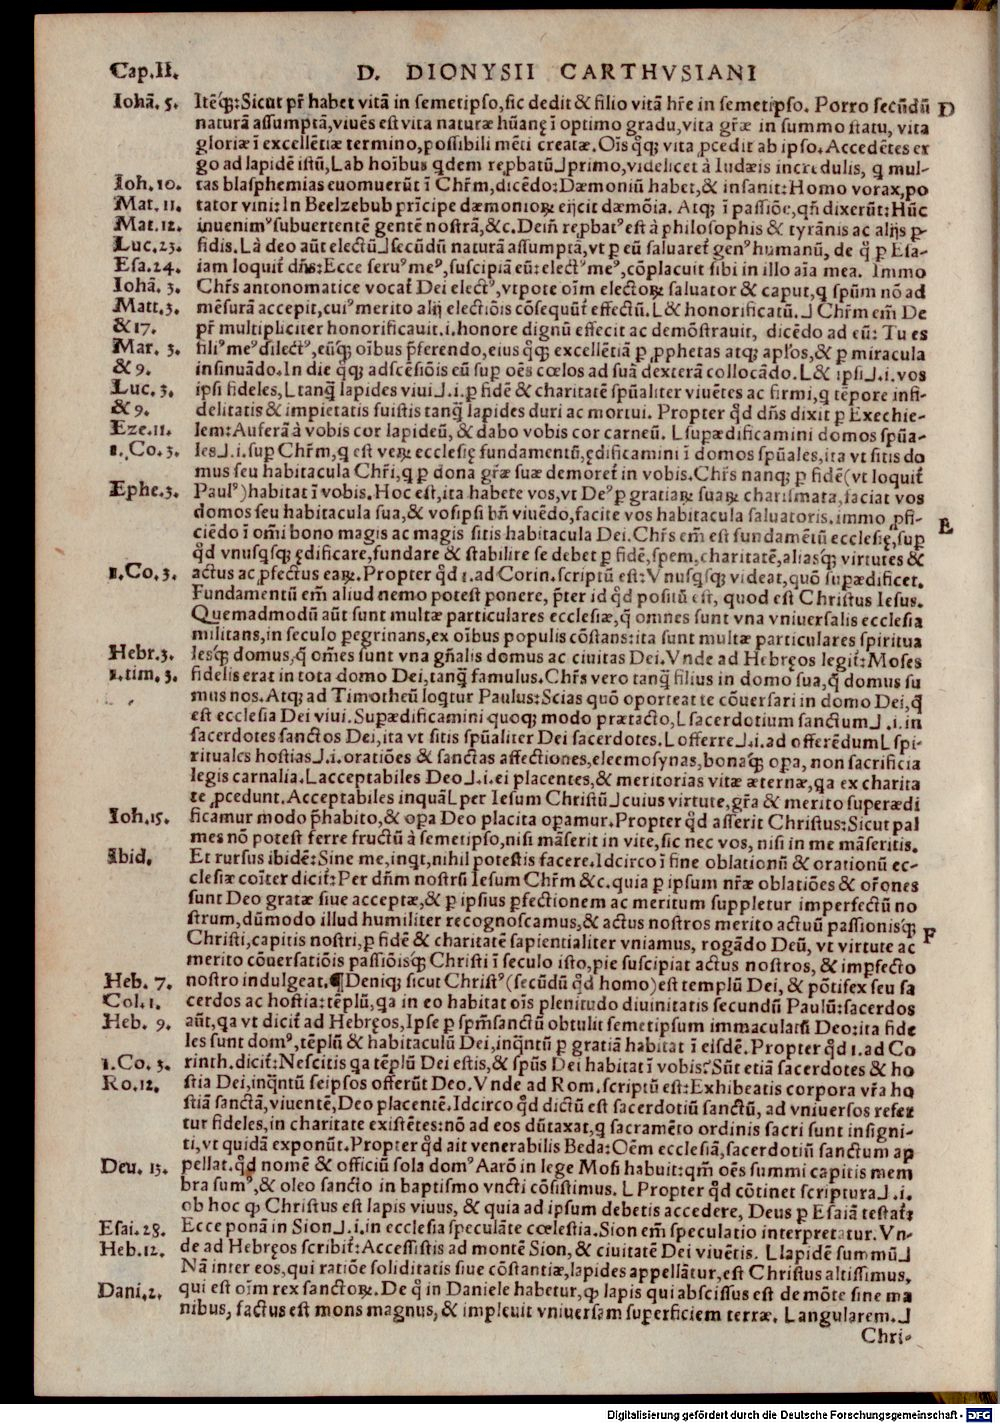 Cap.II. D. DIONYSII CARTHVSIANI
Iohã. 5. Itēq́ꝫ: Sicut pr̃ habet vitã in semetipso, sic dedit & filio vitã hr̃e in semetipso. Porro secũdũ D
naturã assumptã, viuẽs est vita naturæ hũanę ĩ optimo gradu, vita gr̃æ in summo statu, vita
gloriæ ĩ excellẽtiæ termino, possibili mẽti creatæ. Oĩs q̃qꝫ vita ꝓcedit ab ipso. Accedẽtes er
go ad lapidẽ istũ, L ab hoĩbus qdem reꝓbatũ ⅃ primo, videlicet à Iudæis incredulis, q mul-
Ioh. 10. tas blasphemias euomuerũt ĩ Chr̃m, dicẽdo: Dæmoniũ habet, & insanit: Homo vorax, po
Mat. 11. tator vini: In Beelzebub prĩcipe dæmonioꝝ eijcit dæmõia. Atqꝫ ĩ passiõe, qñ dixerũt: Hũc
Mat. 12. inuenimꝰ subuertentẽ gentẽ nostrã, &c. Deiñ reꝓbatꝰ est à philosophis & tyrãnis ac alijs ꝑ
Luc. 23. fidis. L à deo aũt electũ ⅃ secũdũ naturã assumptã, vt ꝑ eũ saluaret̃ genꝰ humanũ, de q̃ ꝑ Esa-
Esa. 24. iam loquit̃ dñs: Ecce seruꝰ meꝰ, suscipiã eũ: electꝰ meꝰ, cõplacuit sibi in illo aĩa mea. Immo
Iohã. 3. Chr̃s antonomatice vocat̃ Dei electꝰ, vtpote oĩm electoꝝ saluator & caput, q spũm nõ ad
Matt. 3. mẽsurã accepit, cuiꝰ merito alij electiõis cõsequũt̃ effectũ. L & honorificatũ. ⅃ Chr̃m em̃ De
& 17. pr̃ multipliciter honorificauit. i. honore dignũ effecit ac demõstrauit, dicẽdo ad eũ: Tu es
Mar. 3. filiꝰ meꝰ dilectꝰ, eũq́ꝫ oĩbus p̃ferendo, eius q̃qꝫ excellẽtiã ꝑ ꝓphetas atqꝫ apl̃os, & ꝑ miracula
& 9. insinuãdo. In die q̃qꝫ adscẽsiõis eũ suꝑ oẽs cœlos ad suã dexterã collocãdo. L & ipsi ⅃ .i. vos
Luc. 3. ipsi fideles, L tanq̃ lapides viui ⅃ .i. ꝑ fidẽ & charitatẽ spũaliter viuẽtes ac firmi, q tẽpore infi-
& 9. delitatis & impietatis fuistis tanq̃ lapides duri ac mortui. Propter q̃d dñs dixit ꝑ Exechie-
Eze. 11. lem: Auferã à vobis cor lapideũ, & dabo vobis cor carneũ. L supædificamini domos spũa-
1. Co. 3. les ⅃ .i. suꝑ Chr̃m, q est veꝝ ecclesię fundamentũ, ędificamini ĩ domos spũales, ita vt sitis do
mus seu habitacula Chr̃i, q ꝑ dona gr̃æ suæ demoret̃ in vobis. Chr̃s nanqꝫ ꝑ fidẽ (vt loquit̃
Ephe. 3. Paulꝰ) habitat ĩ vobis. Hoc est, ita habete vos, vt Deꝰ ꝑ gratiaꝝ suaꝝ charismata, faciat vos
domos seu habitacula sua, & vosipsi bñ viuẽdo, facite vos habitacula saluatoris. immo ꝓfi- E
ciẽdo ĩ om̃i bono magis ac magis sitis habitacula Dei. Chr̃s em̃ est fundamẽtũ ecclesię, suꝑ
q̃d vnusqsqꝫ ędificare, fundare & stabilire se debet ꝑ fidẽ, spem, charitatẽ, aliasq́ꝫ virtutes &
1. Co. 3. actus ac ꝓfectus eaꝝ. Propter q̃d 1. ad Corin. scriptũ est: Vnusqsqꝫ videat, quõ supædificet.
Fundamentũ em̃ aliud nemo potest ponere, p̃ter id q̃d positũ est, quod est Christus Iesus.
Quemadmodũ aũt sunt multæ particulares ecclesiæ, q̃ omnes sunt vna vniuersalis ecclesia
militans, in seculo ꝑegrinans, ex oĩbus populis cõstans: ita sunt multæ particulares spiritua
Hebr. 3. lesq́ꝫ domus, q̃ om̃es sunt vna gñalis domus ac ciuitas Dei. Vnde ad Hebręos legit̃: Moses
1. tim. 3. fidelis erat in tota domo Dei, tanq̃ famulus. Chr̃s vero tanq̃ filius in domo sua, q̃ domus su
mus nos. Atqꝫ ad Timotheũ loqtur Paulus: Scias quõ oporteat te cõuersari in domo Dei, q̃
est ecclesia Dei viui. Supædificamini quoqꝫ modo prætacto, L sacerdotium sanctum ⅃ .i. in
sacerdotes sanctos Dei, ita vt sitis spũaliter Dei sacerdotes. L offerre ⅃ .i. ad offerẽdum L spi-
rituales hostias ⅃ .i. oratiões & sanctas affectiones, eleemosynas, bonaq́ꝫ oꝑa, non sacrificia
legis carnalia. L acceptabiles Deo ⅃ .i. ei placentes, & meritorias vitæ æternæ, qa ex charita
te ꝓcedunt. Acceptabiles inquã L per Iesum Christũ ⅃ cuius virtute, gr̃a & merito superædi
Ioh. 15. ficamur modo p̃habito, & oꝑa Deo placita oꝑamur. Propter q̃d asserit Christus: Sicut pal
mes nõ potest ferre fructũ à semetipso, nisi mãserit in vite, sic nec vos, nisi in me mãseritis.
Ibid. Et rursus ibidẽ: Sine me, inqt, nihil potestis facere. Idcirco ĩ fine oblationũ & orationũ ec-
clesiæ coĩter dicit̃: Per dñm nostrũ Iesum Chr̃m &c. quia ꝑ ipsum nr̃æ oblatiões & or̃ones
sunt Deo gratæ siue acceptæ, & ꝑ ipsius ꝑfectionem ac meritum suppletur imperfectũ no
strum, dũmodo illud humiliter recognoscamus, & actus nostros merito actuũ passionisq́ꝫ F
Christi, capitis nostri, ꝑ fidẽ & charitatẽ sapientialiter vniamus, rogãdo Deũ, vt virtute ac
merito cõuersatiõis passiõisq́ꝫ Christi ĩ seculo isto, pie suscipiat actus nostros, & imꝑfecto
Heb. 7. nostro indulgeat. ¶ Deniqꝫ sicut Christꝰ (secũdũ q̃d homo) est templũ Dei, & põtifex seu sa
Col. 1. cerdos ac hostia: tẽplũ, qa in eo habitat oĩs plenitudo diuinitatis secundũ Paulũ: sacerdos
Heb. 9. aũt, qa vt dicit̃ ad Hebręos, Ipse ꝑ spm̃sanctũ obtulit semetipsum immaculatũ Deo: ita fide
les sunt domꝰ, tẽplũ & habitaculũ Dei, inq̃ntũ ꝑ gratiã habitat ĩ eisdẽ. Propter q̃d 1. ad Co
1. Co. 3. rinth. dicit̃: Nescitis qa tẽplũ Dei estis, & spũs Dei habitat ĩ vobis? Sũt etiã sacerdotes & ho
Ro. 12. stia Dei, inq̃ntũ seipsos offerũt Deo. Vnde ad Rom. scriptũ est: Exhibeatis corpora vr̃a ho
stiã sanctã, viuentẽ, Deo placentẽ. Idcirco q̃d dictũ est sacerdotiũ sanctũ, ad vniuersos refer
tur fideles, in charitate existẽtes: nõ ad eos dũtaxat, q sacramẽto ordinis sacri sunt insigni-
ti, vt quidã exponũt. Propter q̃d ait venerabilis Beda: Oẽm ecclesiã, sacerdotiũ sanctum ap
Deu. 13. pellat. q̃d nomẽ & officiũ sola domꝰ Aarõ in lege Mosi habuit: qm̃ oẽs summi capitis mem
bra sumꝰ, & oleo sancto in baptismo vncti cõsistimus. L Propter q̃d cõtinet scriptura ⅃ .i.
ob hoc ꝙ Christus est lapis viuus, & quia ad ipsum debetis accedere, Deus ꝑ Esaiã testat̃:
Esai. 28. Ecce ponã in Sion ⅃ .i. in ecclesia speculãte cœlestia. Sion em̃ speculatio interpretatur. Vn-
Heb. 12. de ad Hebręos scribit̃: Accessistis ad montẽ Sion, & ciuitatẽ Dei viuẽtis. L lapidẽ summũ ⅃
Nã inter eos, qui ratiõe soliditatis siue cõstantiæ, lapides appellãtur, est Christus altissimus,
Dani. 2. qui est oĩm rex sanctoꝝ. De q̃ in Daniele habetur, ꝙ lapis qui abscissus est de mõte sine ma
nibus, factus est mons magnus, & impleuit vniuersam superficiem terræ. L angularem. ⅃
Chri-
Digitalisierung gefördert durch die Deutsche Forschungsgemeinschaft - DFG